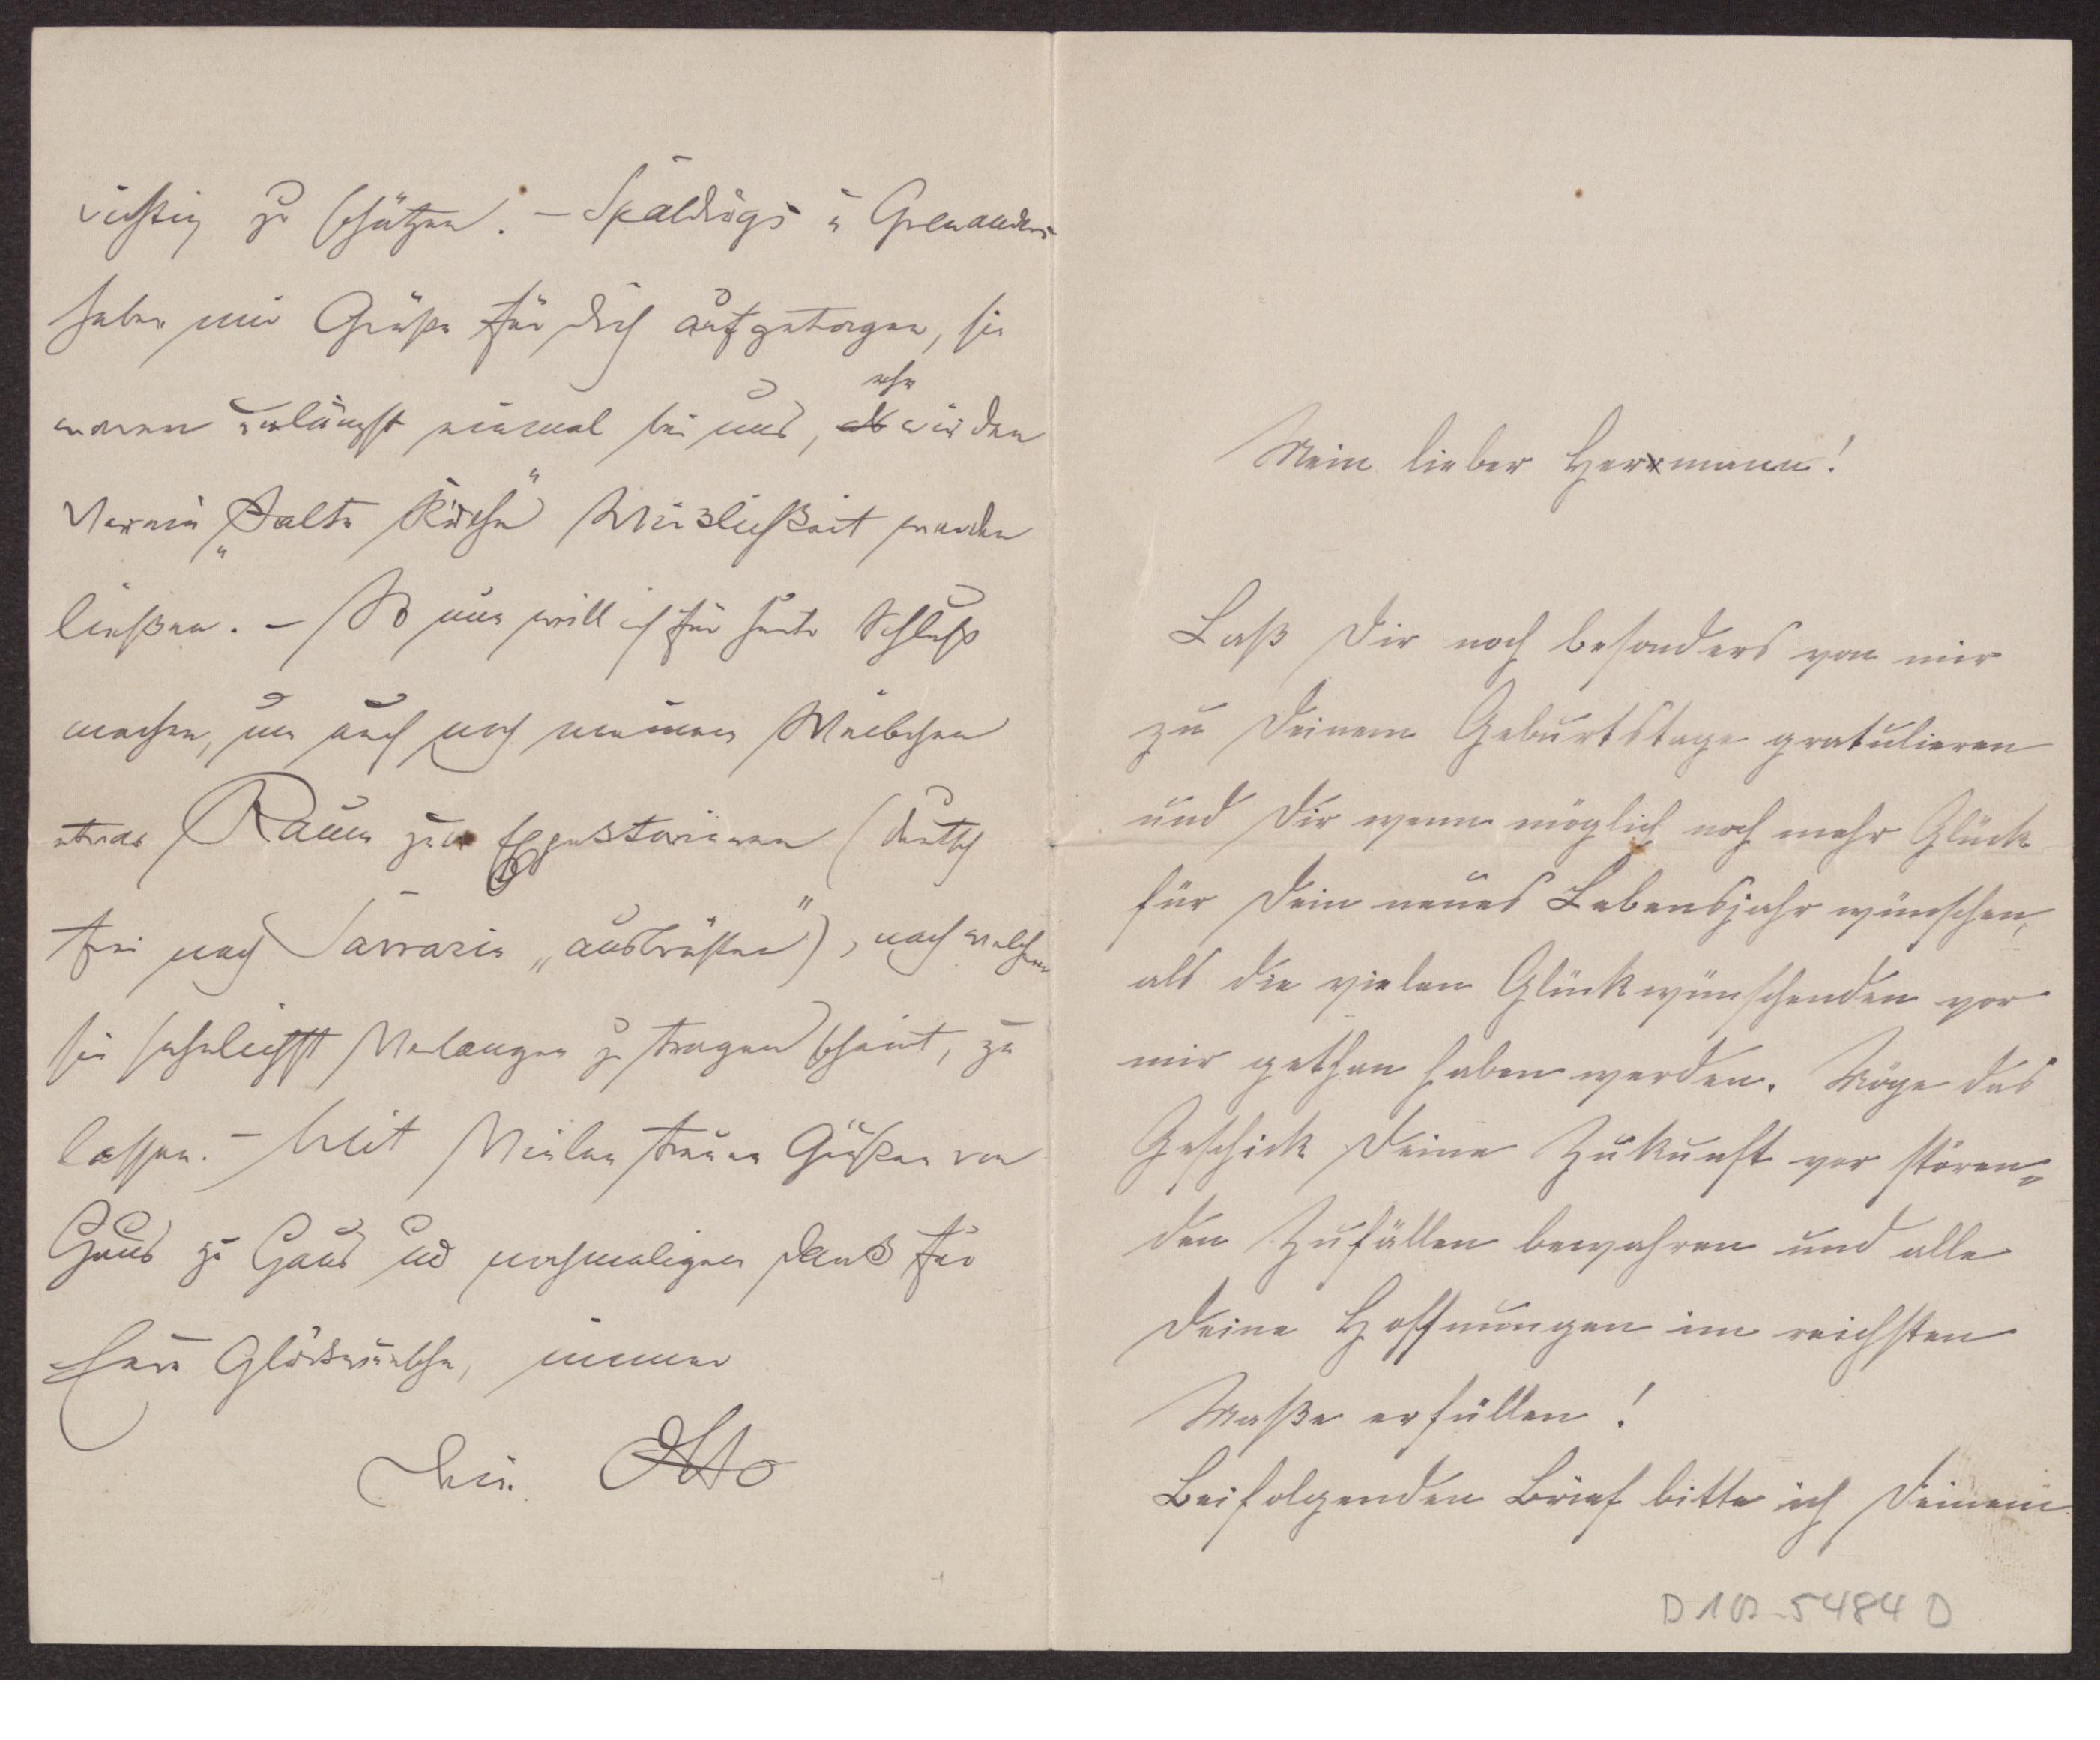 richtig zu schätzen. – Spaldings u Grenanders
haben mir Grüße für Dich aufgetragen, sie
waren unlängst einmal bei uns, ehe wir den
Verein „Kalte Küche“ Wirklichkeit werden
ließen. – So nun will ich für heute Schluß
machen, um auch noch meinem Weibchen
etwas Raum zum Expektorieren (deutsch
frei nach Sarrazin „auskräften“), nach welchem
sie sehnlichst Verlangen zu tragen scheint, zu
lassen. – Mit vielen treuen Grüßen von
Haus zu Haus und nochmaligem Dank für
Eure Glückwünsche, immer
Dein Otto
Mein lieber Herrmann!
Laß Dir noch besonders von mir
zu Deinem Geburtstage gratulieren
und Dir wenn möglich noch mehr Glück
für Dein neues Lebensjahr wünschen,
als die vielen Glückwünschenden vor
mir gethan haben werden. Möge das
Geschick Deine Zukunft vor stören=
den Zufällen bewahren und alle
Deine Hoffnungen im reichsten
Maße erfüllen!
Beifolgenden Brief bitte ich Deinem
5484 D